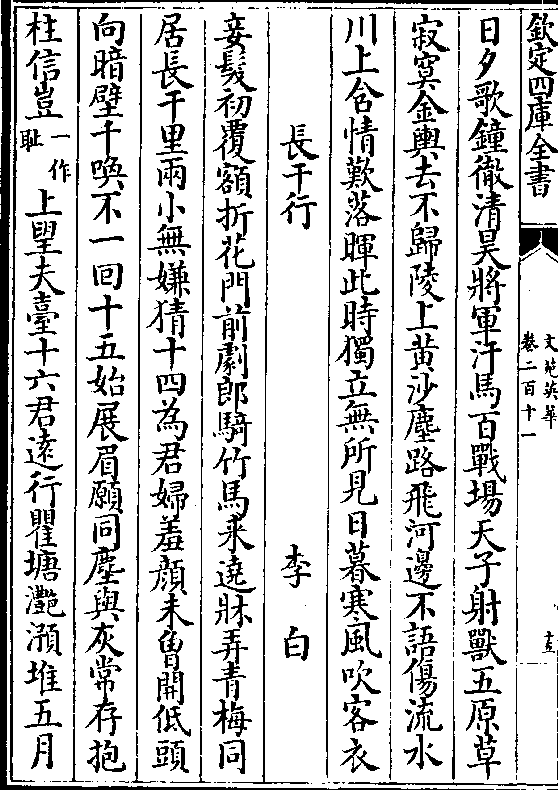 欽定四庫全書
文苑英華
卷二百十一
日夕歌鐘徹清昊將軍汗馬百戰場天子射獸五原草
寂寞金輿去不歸陵上黃沙塵路飛河邊不語傷流水
川上含情歎落暉此時獨立無所見日暮寒風吹客衣
長干行
李白
妾髮初覆額折花門前劇郎騎竹馬來遶牀弄青梅同
居長干里兩小無嫌猜十四為君婦羞顔未曾開低頭
向暗壁千喚不一回十五始展眉願同塵與灰常存抱
柱信豈一作恥上望夫臺十六君遠行瞿塘灔澦堆五月